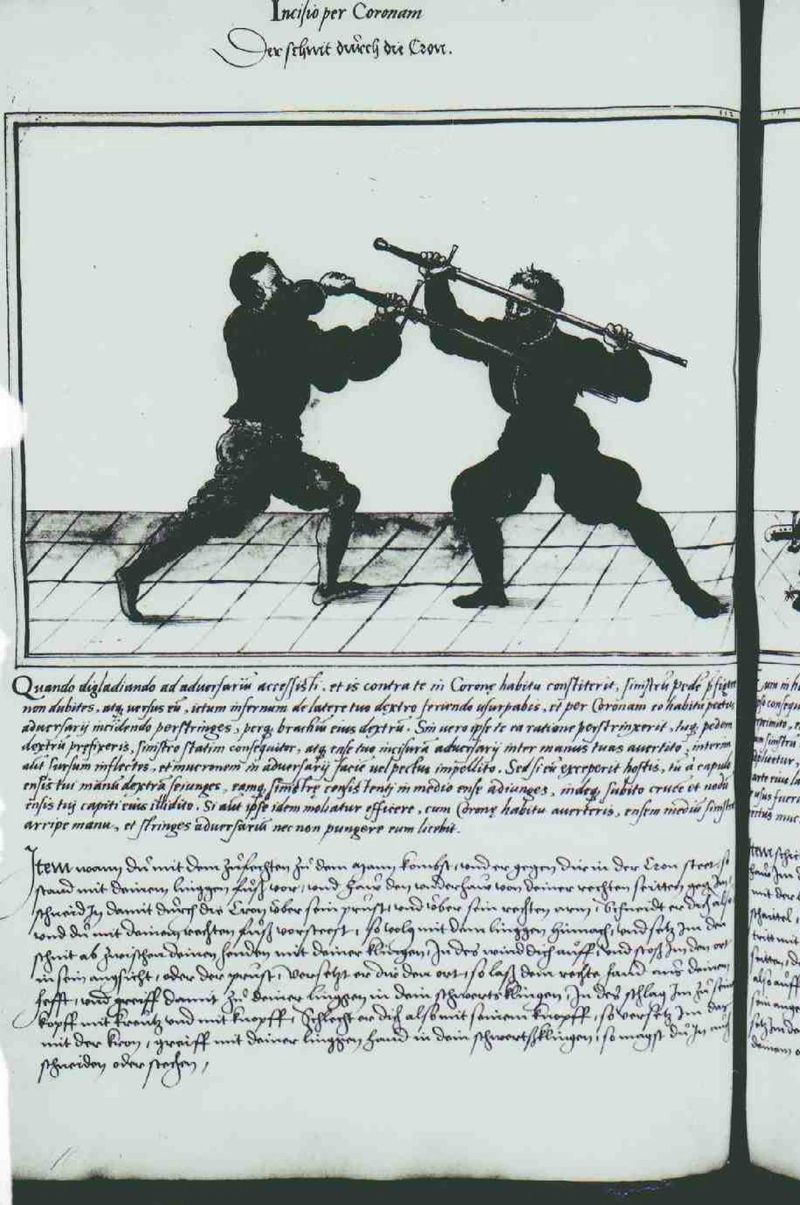 Incisio per Coronam
Der schnit durch die Cron.
Quando digladiando ad adversariũ accessisti, et is contra te in Coronę habitu constiterit, sinistrũ pede
non dubites, atq, versus eũ, ictum infernum de latere tuo dextro feriendo usurpabis, et per Coronam eo habitu
adversarij incidendo perstringes, perq, brachiũ eius dextrũ. Sin vero ipse te ea ratione perstrinxerit, tuq, pedem
dextrũ prefixeris, sinistro statim consequitor, atq, ense tuo incisurã adversarij inter manus tuas avertito, interim
aũt sursum inflectes, et mucronem in adversarij facie vel pectus impellito. Sed si eũ exceperit hostis, tu a capulo
ensis tui manũ dextrã seiunges, eamq, sinistrę consistenti in medio ense adiunges, indeq, subito cruce et nodũ
ensis tui capiti eius illidito. Si aũt ipse idem moliatur efficere, cum Coronę habitu averteris, ensem mediũ sinistra
arripe manu, et stringes adversariũ nec non pungere eum licebit.
Item wann du mit dem zufechten zu dem mann kombst, und er gegen dir in der Cron steet, so
stand mit deinem linggen fuoß vor, und haw den underhaw von deiner rechten seitten gegen
schneid In damit durch die Cron über sein prust, und über sein rechten arm, Schneidt er dich also
und du mit deinem rechten fuoß vorsteest, so volg mit dem linggen hinnach, und setz Im den
schnit ab zwischen deinen henden mit deiner klingen, In des wind dich auff, und stoß Im den ort
in sein angsicht, oder der prust, Versetzt er dir den ort, so laß dein rechte hand aus deinem
hefft, und greiff damit zu deiner linggen in dein schwerts klingen, In des schlag Im zu seinem
kopff mit kreutz und mit knopff, Schlecht er dich also mit seinem knopff, so versetz Im das
mit der kron, greiff mit deiner linggen hand in dein schwertsklingen, so magst du In auch
schneiden oder stechen,